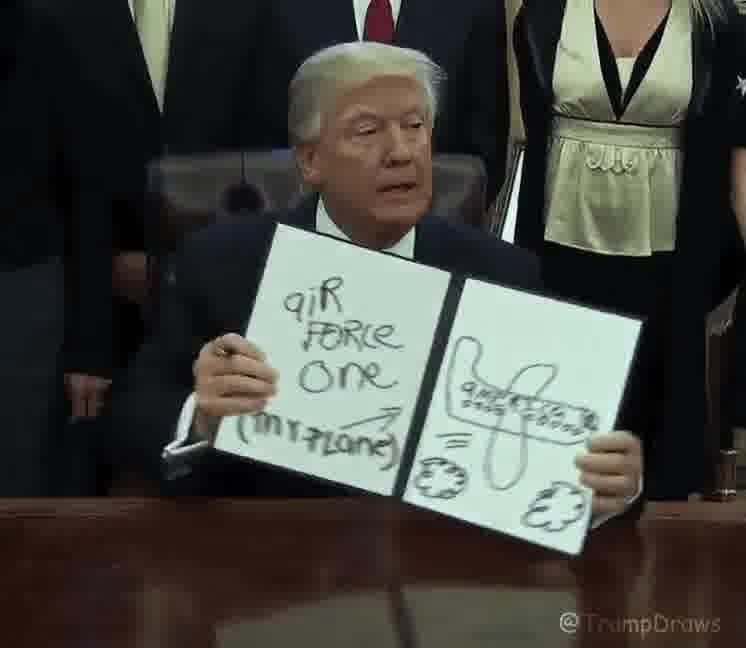 aiR
FORCe
One
(mY PLane)
america
@TrumpDraws